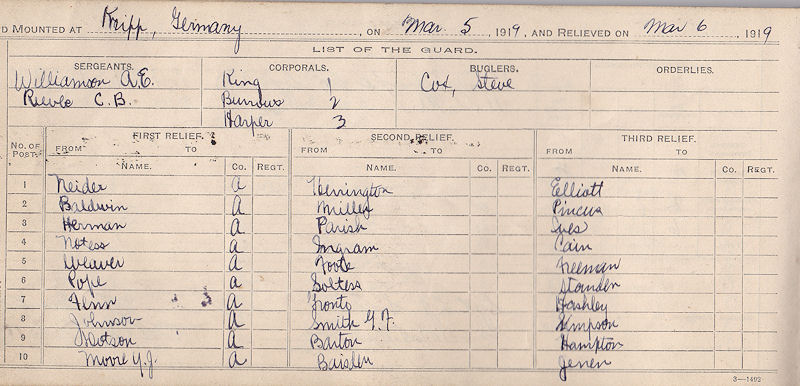 D MOUNTED AT Kripp, Germany, ON Mar. 5 1919, AND RELIEVED ON Mar 6 1919
LIST OF THE GUARD.
SERGEANTS. CORPORALS. BUGLERS. ORDERLIES.
Williamson A.E. King 1 Cox, Steve
C.B. Burrows 2
Harper 3
No. OF POST. FIRST RELIEF. SECOND RELIEF. THIRD RELIEF.
FROM TO FROM TO FROM TO
NAME. Co. REGT. NAME. Co. REGT. NAME. Co. REGT.
1 Neider A Herrington Elliott
2 Baldwin A Miller Pincus
3 Herman A Parish Ives
4 Notess A Ingram Cain
5 Weaver A Foote Freeman
6 Pope A Soltess Standen
7 Fenn 3 A Tronto Hashley
8 Johnson A Smith G.F. Simpson
9 Hotson A Barton Hampton
10 Moore Y.J. A Baisden Jenen
3—1493